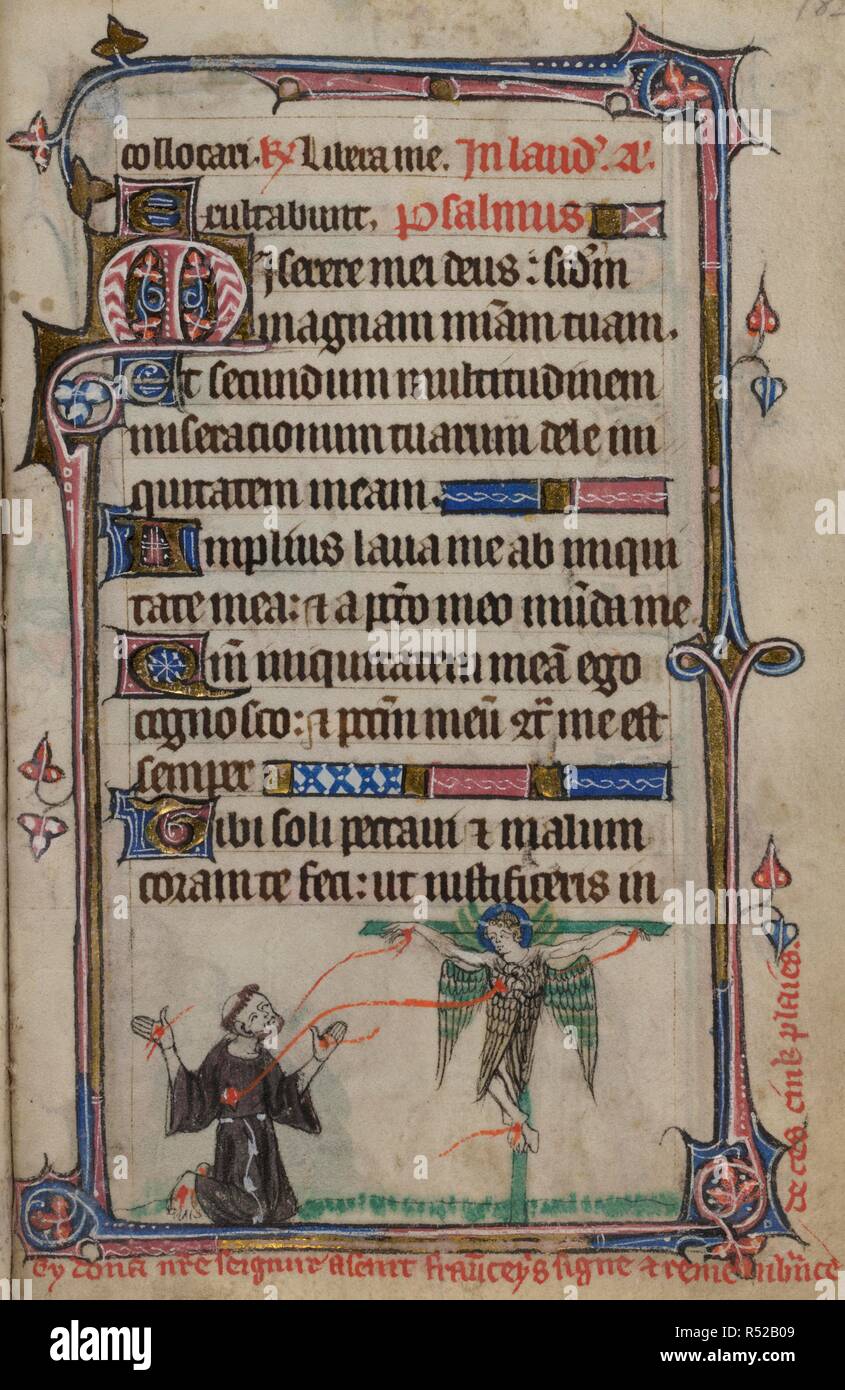 collocari. ℟ Libera me. In laud'. A'.
Exultabunt. Psalmus
Miserere mei deus: scd'm
magnam mi̅am tuam.
Et secundum multitudinem
miseracionum tuarum dele ini
quitatem meam.
Amplius laua me ab iniqui
tate mea: ⁊ a pcc̅o meo mu̅da me
Qm̅ iniquitatem mea̅ ego
cognosco: ⁊ pccm̅ meu̅ 9t̅ me est
semper
Tibi soli peccaui ⁊ malum
coram te feci: ut iustificeris in
Cy dona n̅re seignur a seint frau̅ceys signe ⁊ reme̅nbr̅nce
de ces cink plaies.
alamy
Image ID: R52B09
www.alamy.com